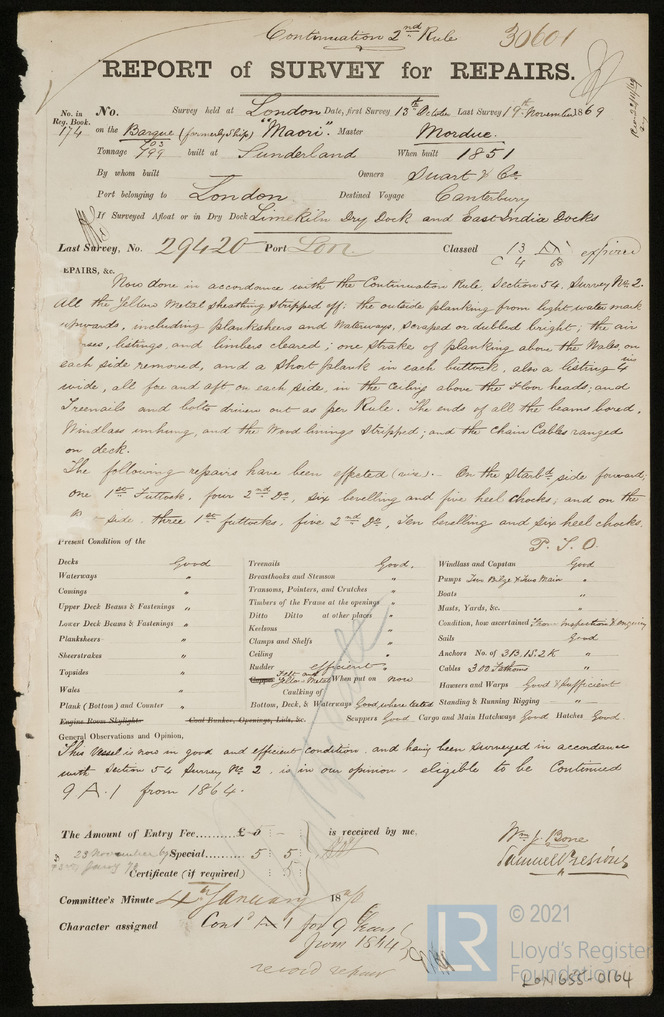 Continuation 2nd Rule 30601
REPORT of SURVEY for REPAIRS.
No. in Reg. Book. 174
No. Survey held at London Date, first Survey 13th October Last Survey 19th November 1869
on the Barque (formerly Ship) "Maori". Master Mordue.
Tonnage 703 799 built at Sunderland When built 1851
By whom built Owners Stuart & Co.
Port belonging to London Destined Voyage Canterbury
If Surveyed Afloat or in Dry Dock Limekiln Dry Dock and East India Docks
Last Survey, No. 29420 Port Lon Classed 13 A1 expired
C 4 68
EPAIRS, &c.
Now done in accordance with the Continuation Rule, Section 54, Survey No. 2.
All the Yellow Metal sheathing stripped off; the outside planking from light water mark
upwards, including planksheers and Waterways, scraped or dubbed bright; the air
ses, listings, and limbers cleared; one strake of planking above the Wales, on
each side removed, and a short plank in each buttock, also a listing 4 in
wide, all fore and aft on each side, in the Ceiling above the Floor heads; and
Treenails and bolts driven out as per Rule. The ends of all the beams bored,
Windlass unhung, and the Wood linings stripped; and the Chain Cables ranged
on deck.
The following repairs have been effected (viz). - On the Starbd. side forward,
one 1st Futtock, four 2nd Do, six bevelling and five heel chocks, and on the
P side, three 1st futtocks, five 2nd Do, Ten bevelling and six heel chocks.
P. T. O.
Present Condition of the
Decks Good
Waterways "
Comings "
Upper Deck Beams & Fastenings "
Lower Deck Beams & Fastenings "
Planksheers "
Sheerstrakes "
Topsides "
Wales "
Plank (Bottom) and Counter "
Engine Room Skylights Coal Bunker, Openings, Lids, &c.
Treenails Good.
Breasthooks and Stemson "
Transoms, Pointers, and Crutches "
Timbers of the Frame at the openings "
Ditto Ditto at other places "
Keelsons "
Clamps and Shelfs "
Ceiling "
Rudder efficient "
Copper Felt and Yellow Metal When put on now
Caulking of
Bottom, Deck, & Waterways Good, where tested
Scuppers Good Cargo and Main Hatchways Good Hatches Good.
Windlass and Capstan Good
Pumps Two Bilge & Two Main "
Boats "
Masts, Yards, &c. "
Condition, how ascertained From Inspection &
Sails Good
Anchors No. of 3B. 1S. 2K "
Cables 300 Fathoms "
Hawsers and Warps Good & sufficient
Standing & Running Rigging - "
General Observations and Opinion,
This Vessel is now in good and efficient condition, and having been surveyed in accordance
with Section 54 Survey No. 2, is in our opinion, eligible to be Continued
9 A. 1 from 1864.
The Amount of Entry Fee.......... £ 5 : - is received by me,
23 November by Special.......... 5 : 5 :
Certificate (if required) : 5 :
Wm. J. Bone
Samuel Presious
Committee's Minute 4th January 1870
Character assigned Contd A 1 for 9 Years
from 1864
record repair
LR © 2021
Lloyd's Register
Foundation
LON655-0164